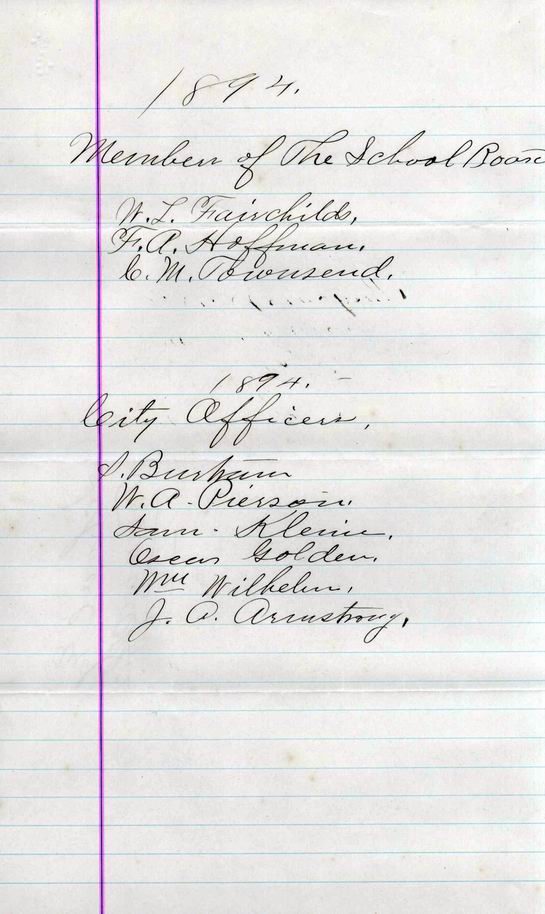 1894.
Members of The School Board
W. L. Fairchilds,
F. A. Hoffman.
C. M. Townsend.
1894. -
City Officers,
S. Burham
W. A. Pierson.
Sam. Kleine.
Oscar Golden.
Wm Wilhelm.
J. O. Armstrong,